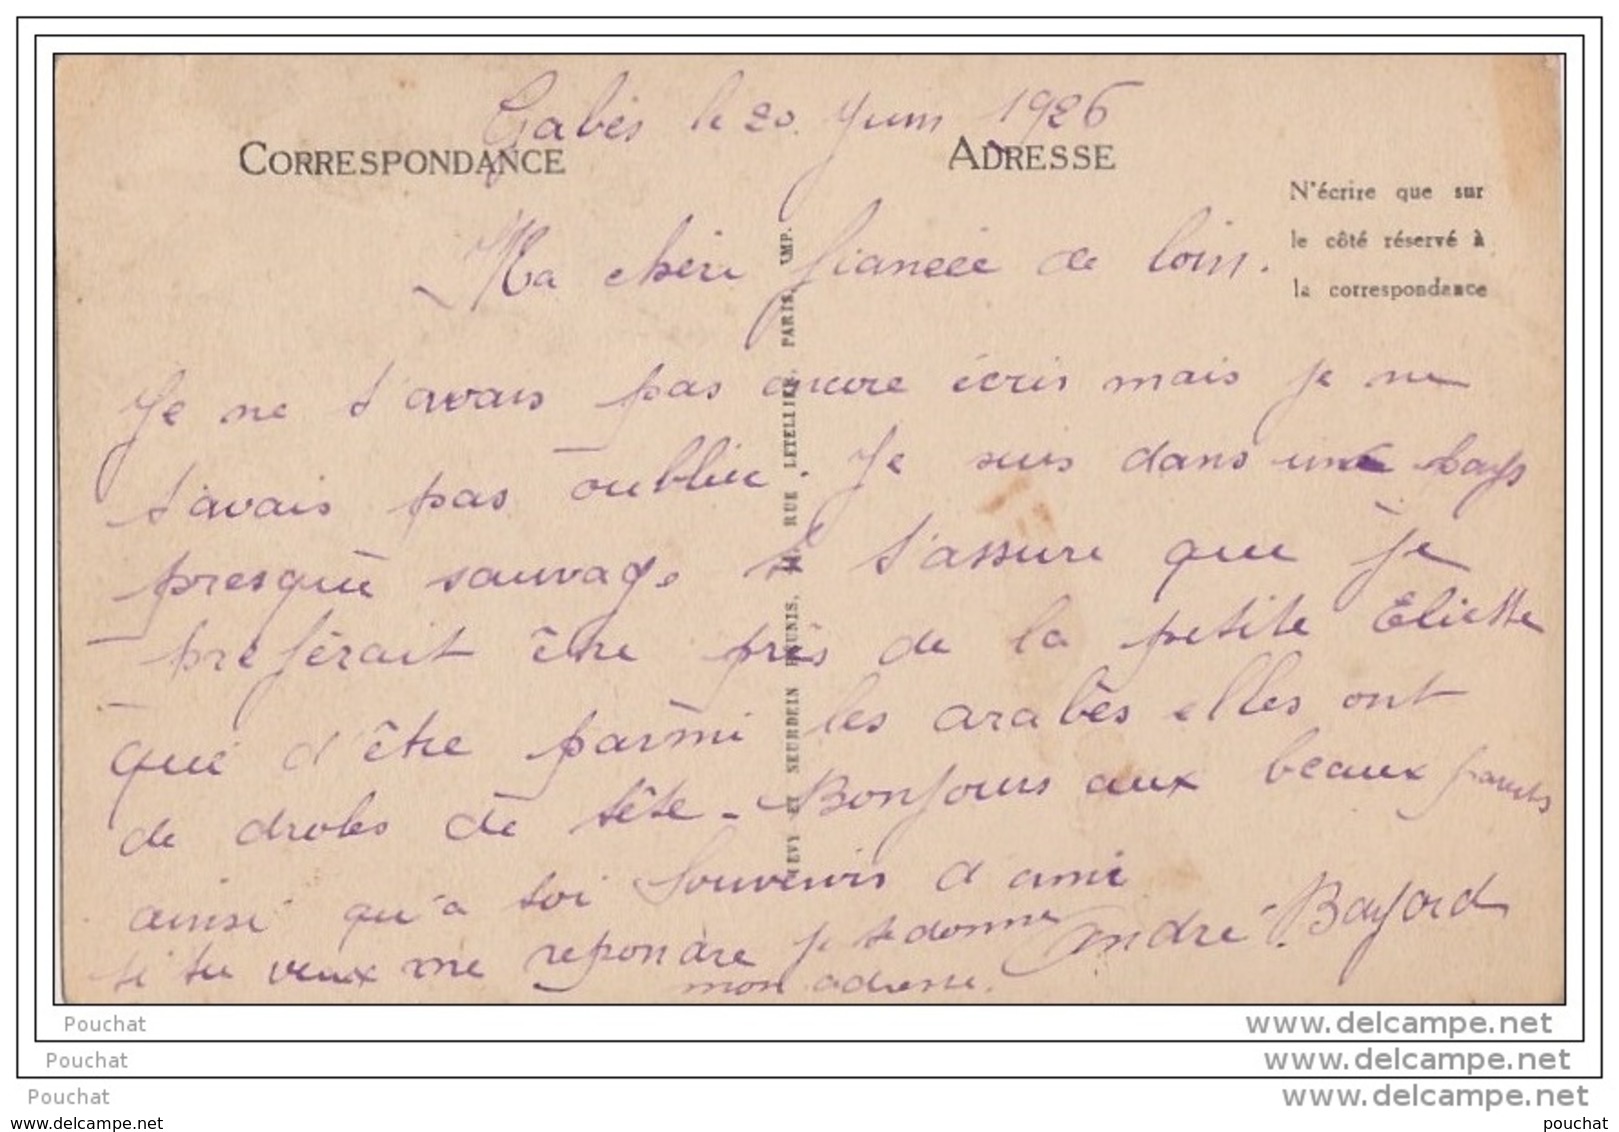 Gabès le 20 Juin 1926
CORRESPONDANCE
ADRESSE
N'écrire que sur
le côté réservé à
la correspondance
Ma chéri fiancée de loin.
Je ne t'avais pas encore écris mais je ne
t'avais pas oublié. Je suis dans un pays
presque sauvage je t'assure que je
préférait être près de la petite Eliette
que d'être parmi les arabes elles ont
de droles de tête - Bonjours aux beaux parents
ainsi qu'a toi Souvenirs d'ami
si tu veux me repondre je te donne
mon adresse.
André Bayard
LEVY ET NEURDEIN RÉUNIS, 44, RUE LETELLIER, PARIS, IMP.
Pouchat
www.delcampe.net
Pouchat
www.delcampe.net
Pouchat
www.delcampe.net
www.delcampe.net
pouchat